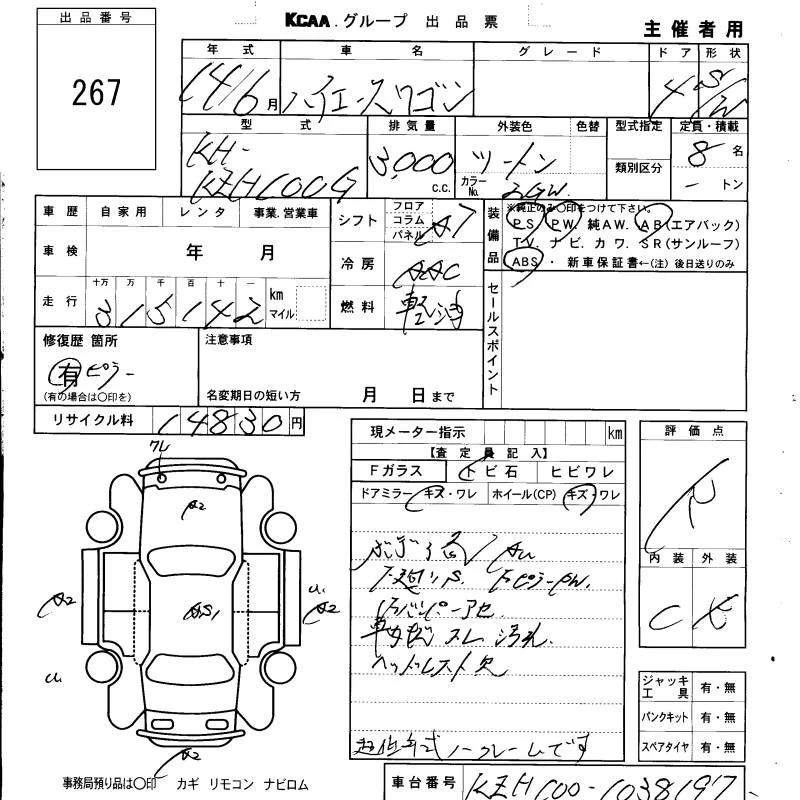 出品番号
267
KCAA.グループ 出品票
主催者用
年式 車名 グレード ドア 形状
14/6月 ハイエースワゴン 4 S/W
型式 排気量 外装色 色替 型式指定 定員・積載
KH-
KZH100G 3,000 c.c. ツートン カラーNo. 2GW. 類別区分 8名 -トン
車歴 自家用 レンタ 事業.営業車
シフト フロア コラム パネル A7
装備品 ※純正のみ〇印をつけて下さい。
PS. PW. 純AW. AB(エアバック)
TV. ナビ. カワ. SR(サンルーフ)
ABS・ 新車保証書←(注)後日送りのみ
車検 年 月
冷房 AAC
走行 十万 万 千 百 十 一
315142 km マイル
燃料 軽油
セールスポイント
修復歴 箇所
有 ピラー
(有の場合は〇印を)
注意事項
名変期日の短い方 月 日まで
リサイクル料 14830円
現メーター指示 km
【査定員記入】
Fガラス トビ石 ヒビワレ
ドアミラー キズ・ワレ ホイール(CP) キズ・ワレ
評価点
R
内装 外装
C E
ワレ
A2
AS1
A2
A2
U1
U1
A2
ボディ
ヘッドレスト欠
ノークレームです
ジャッキ工具 有・無
パンクキット 有・無
スペアタイヤ 有・無
事務局預り品は〇印 カギ リモコン ナビロム
車台番号 KZH100-1038197